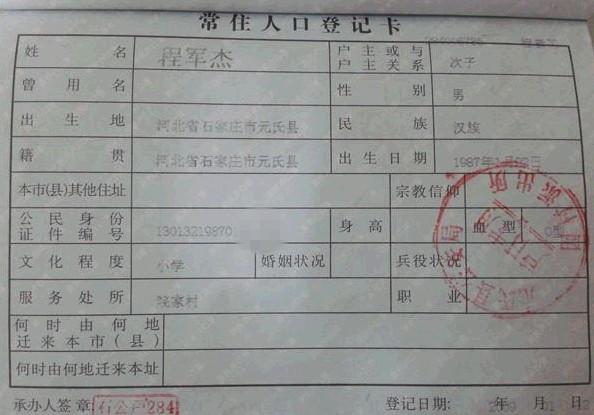 常住人口登记卡
姓名 程军杰 户主或与户主关系 次子
曾用名 性别 男
出生地 河北省石家庄市元氏县 民族 汉族
籍贯 河北省石家庄市元氏县 出生日期 1987年1月02日
本市(县)其他住址 宗教信仰
公民身份证件编号 13013219870 身高 血型
文化程度 小学 婚姻状况 兵役状况
服务处所 职业
何时由何地迁来本市(县)
何时由何地迁来本址
承办人签章: 石公户284 登记日期: 年 月 日
派出所